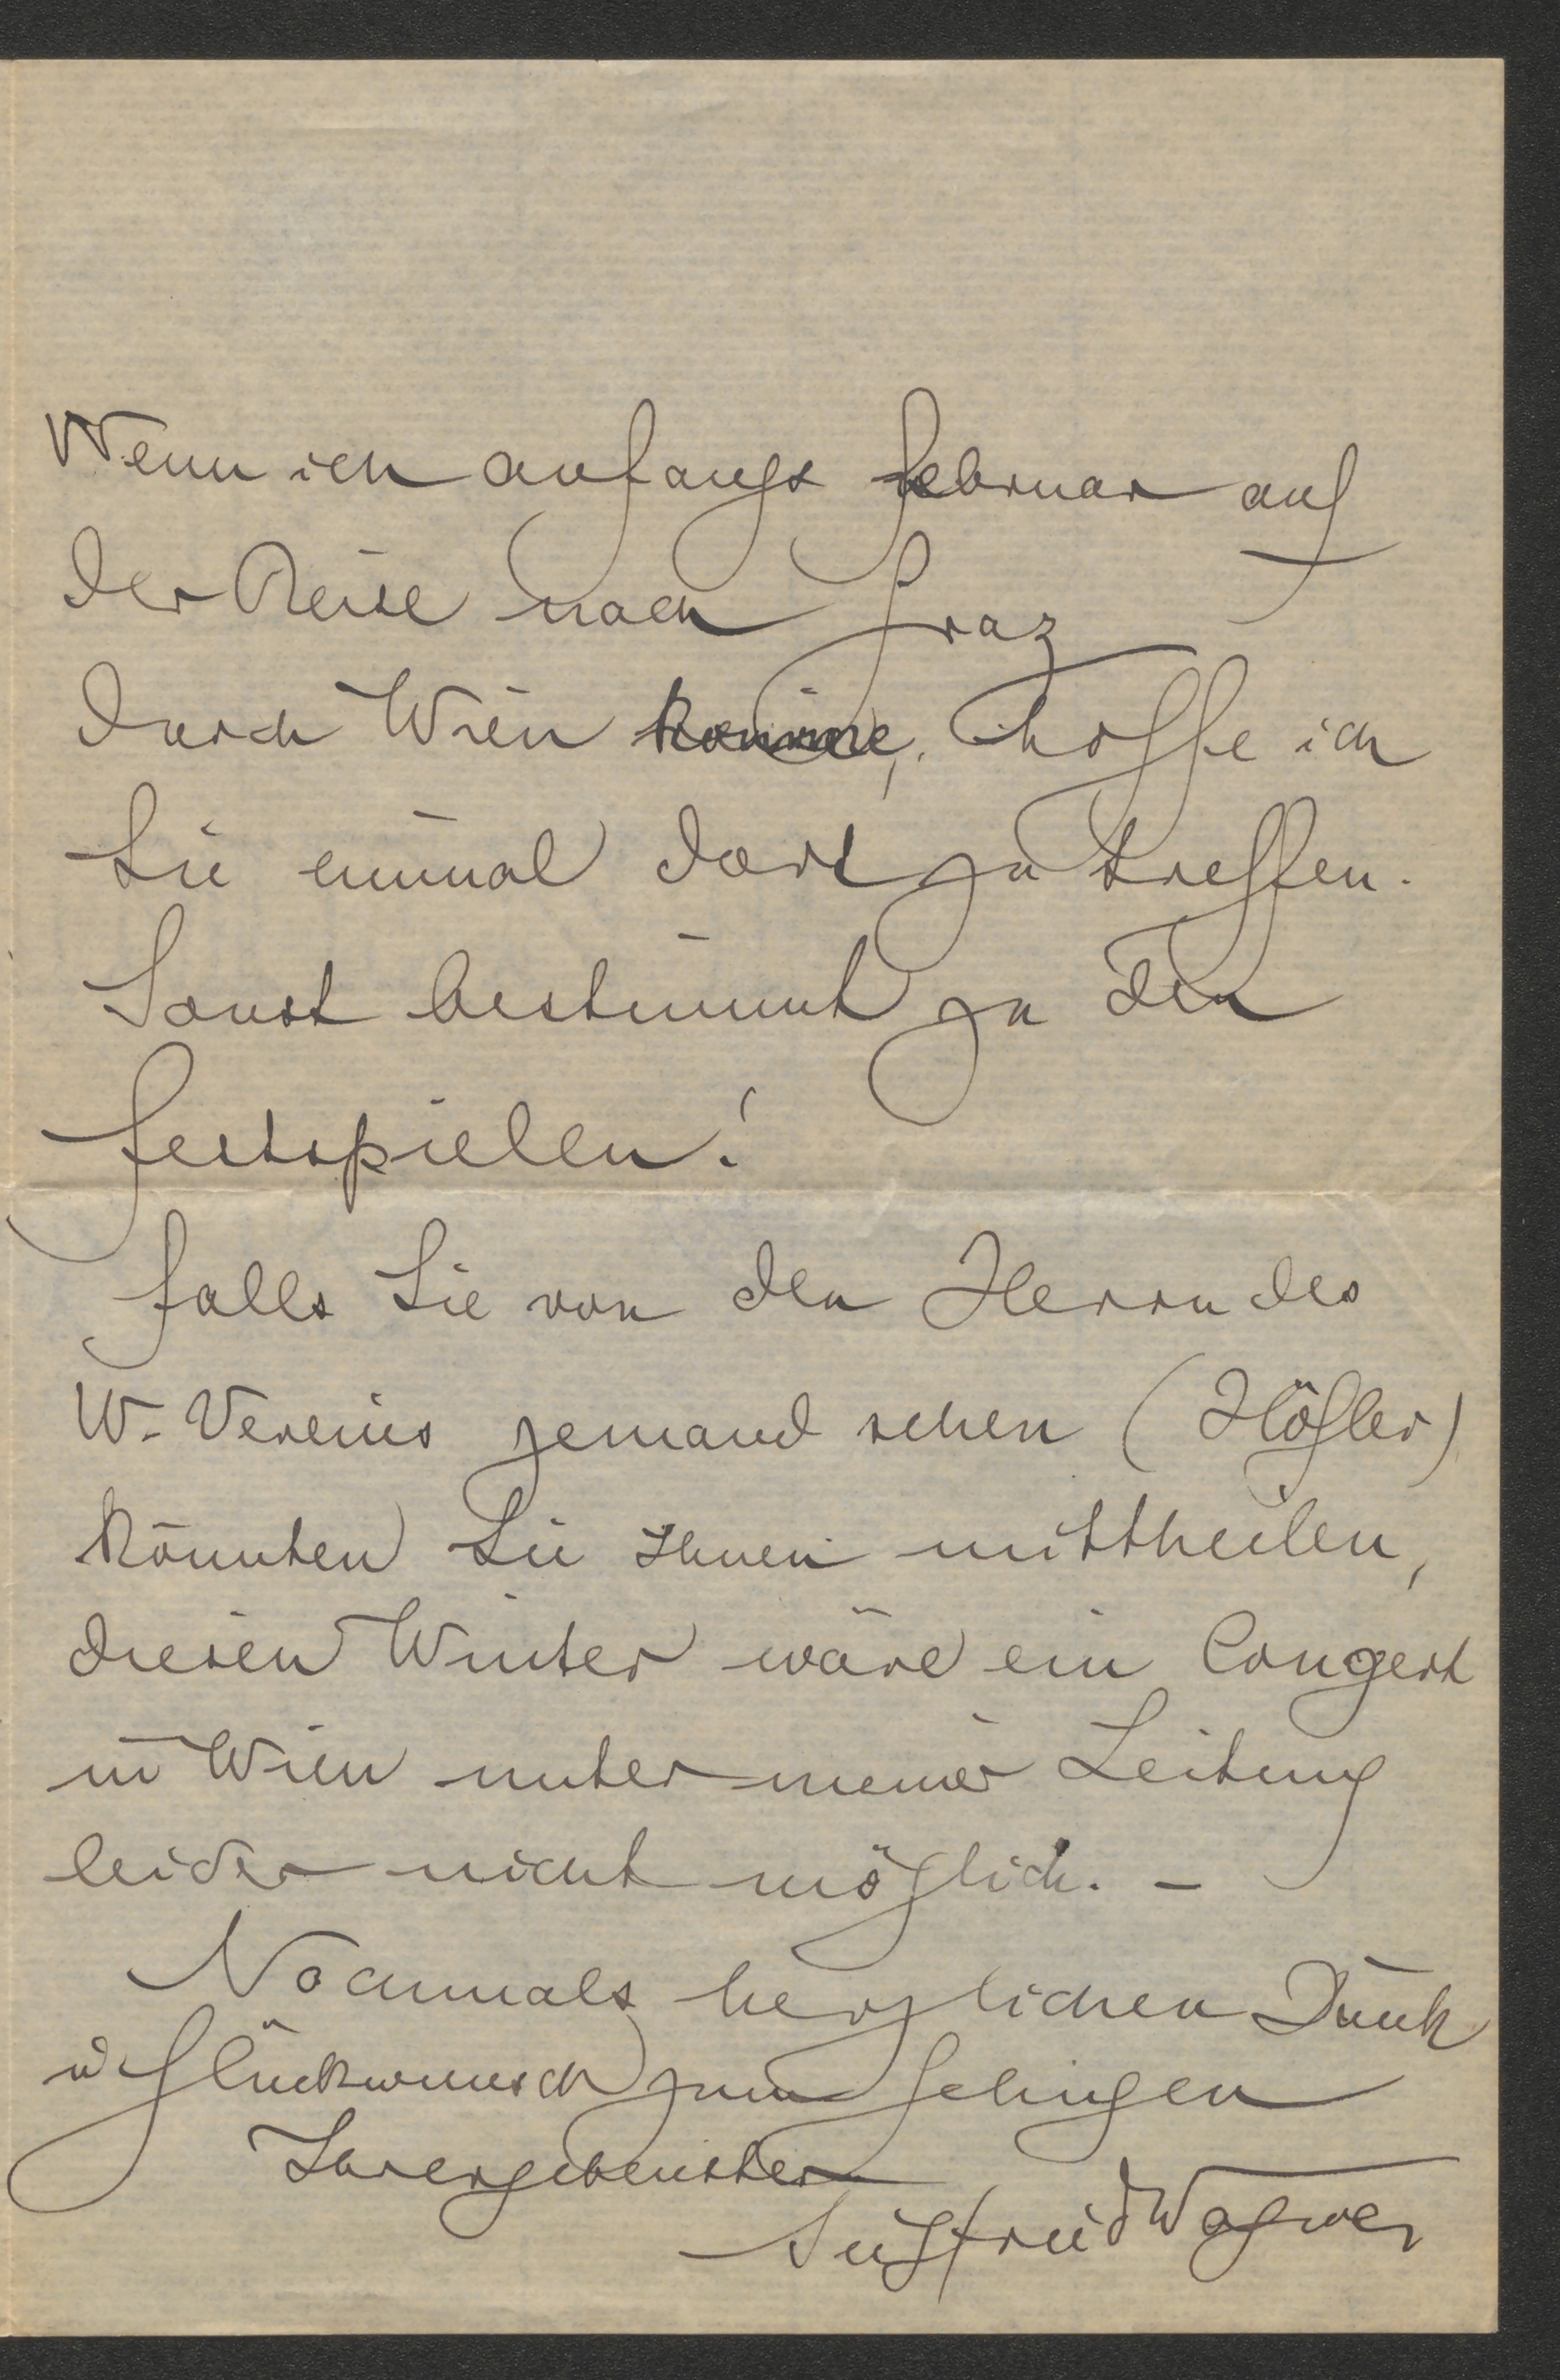 Wenn ich anfangs Februar auf
der Reise nach Graz
durch Wien komme, hoffe ich
Sie einmal dort zu treffen.
Sonst bestimmt zu den
Festspielen!
Falls Sie von den Herrn des
W. Vereins jemand sehen (Höfler)
könnten Sie Ihnen mittheilen,
diesen Winter wäre ein Conzert
in Wien unter meiner Leitung
leider nicht möglich. –
Nochmals herzlichen Dank
u Glückwunsch zum Gelingen
Ihr ergebenster
Siegfried Wagner